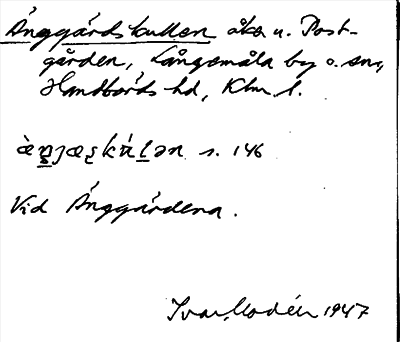 Änggärdskullen åker u. Post-
gården, Långemåla by o. sn,
Handbörds hd, Klm l.
s. 146
Vid Änggärdena.
Ivar Modéer 1947